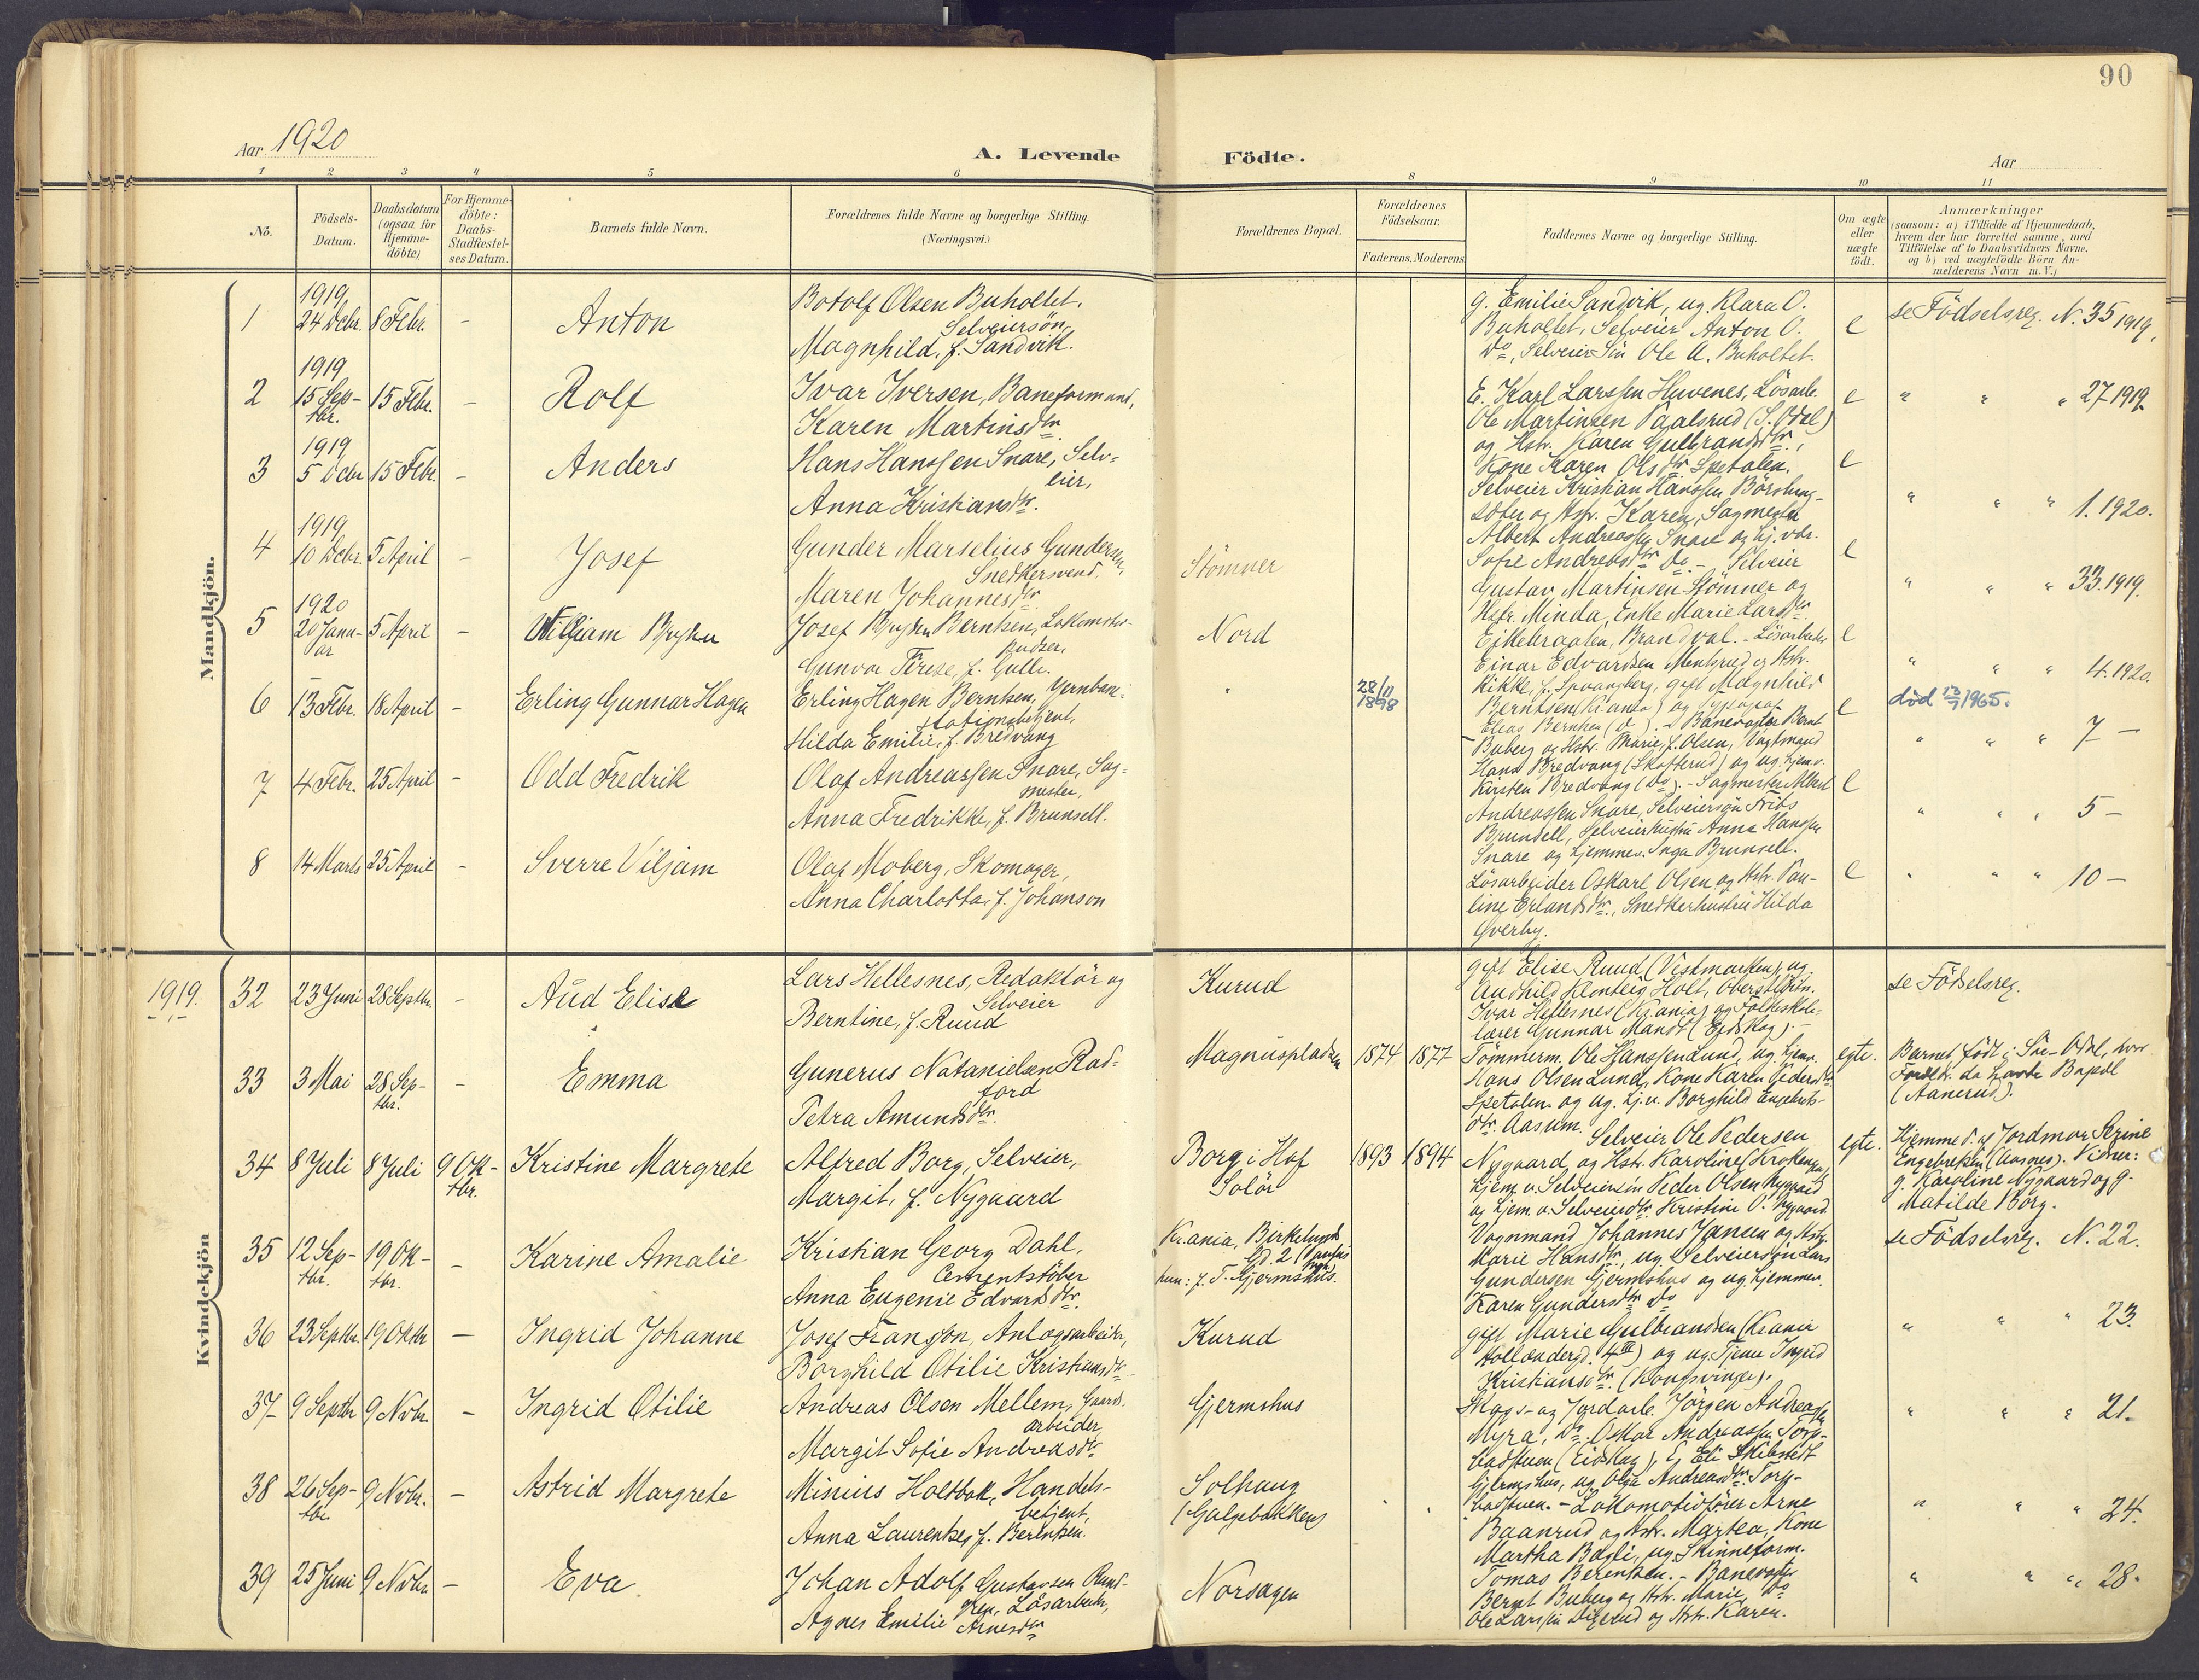 90
Aar 1920
A. Levende
Födte.
Aar
1 2 3 4 5 6 8 9 10 11
No.
Födsels-
Datum.
Daabsdatum
(ogsaa for
Hjemme-
döbte)
For Hjemme-
döbte:
Daabs-
Stadfæstel-
ses Datum.
Barnets fulde Navn.
Forældrenes fulde Navne og borgerlige Stilling.
(Næringsvei.)
Forældrenes Bopæl.
Forældrenes
Födselsaar.
Faderens. Moderens
Faddernes Navne og borgerlige Stilling.
Om ægte
eller
uægte
födt.
Anmærkninger
(saasom: a) i Tilfælde af Hjemmedaab,
hvem der har forrettet samme, med
Tilföielse af to Daabsvidners Navne,
og b) ved uægtefödte Börn An-
melderens Navn m. V.)
Mandkjön.
1
1919
24 Dcbr.
8 Febr.
-
Anton
Botolf Olsen Buholtet.
Selveiersön,
Magnhild, f. Sandvik.
g. Emilie Sandvik, ug. Klara O.
Buholtet, Selveier Anton O.
Do, Selveier Sön Ole A. Buholtet.
e
se Födselsreg. N. 35 1919.
2
1919
15 Sep-
tbr.
15 Febr.
-
Rolf
Ivar Iversen, Baneformand,
Karen Martinsdtr.
E. Karl Larssen Huvenes, Lösarb.
Ole Martinsen Vaalsrud (S. Odal)
og Hstr. Karen Gulbrandsdtr.,
e
" " " 27 1919.
3
1919
5 Dcbr
15 Febr.
-
Anders
Hans Hanssen Snare, Selv-
eier,
Anna Kristiansdtr.
Kone Karen Olsdtr. Spetalen.
Selveier Kristian Hanssen
og Hstr. Karen, Sagmester
Albert Andreassen Snare og hj. vdr.
e
" " " 1. 1920.
4
1919
10 Dcbr.
5 April
-
Josef
Gunder Marselius Gundersen,
Snedkersvend,
Maren Johannesdtr.
Stömner
Sofie Andreasdtr. Do. - Selveier
Gustav Martinsen Stömner og
Hstr. Minda, Enke Marie Larsdtr.
e
" " " 33. 1919.
5
1920
20 Janu-
ar
5 April
-
William Brynhu
Josef Berntsen, Lokomotiv-
pudser,
Gunvor Terese, f. Gulli.
Nord
Eikebraaten, Brandval. - Lösarbeider
Einar Edvardsen Mentsrud og Hstr.
Rikke, f. Spvangberg, gift Magnhild
e
" " " 4. 1920.
6
13 Febr.
18 April
-
Erling Gunnar Hagen
Erling Hagen Berntsen, Jernbane-
stationsbetjent,
Hilda Emilie, f. Bredvang
"
28/11
1898
Berntsen (Kr.ania) og
Elias Berntsen (Do). - Banevogter Bernt
Buberg og Hstr. Marie, f. Olsen, Vagtmand
Hans Bredvang (Skotterud) og ug. hjemv.
Kirsten Bredvang (Do). - Sagmester Albert
e
död 13/9 1965.
" " " 7 -
7
4 Febr.
25 April
-
Odd Fredrik
Olaf Andreassen Snare, Sag-
mester,
Anna Fredrikke, f. Brunsell.
Andreassen Snare, Selveiersön Frits
Brunsell, Selveierhustru Anna Hanssen
Snare og hjemmev. Inga Brunsell.
e
" " " 5 -
8
14 Marts
25 April
-
Sverre Viljam
Olaf Moberg, Skomager,
Anna Charlotta, f. Johanson
Lösarbeider Oskar Olsen og Hstr. Pau-
line Erlandsdtr., Snedkerhustru Hilda
Gverby.
e
" " " 10 -
Kvindekjön
1919.
32
23 Juni
28 Septbr.
-
Aud Elise
Lars Hellesnes, Redaktör og
Selveier
Berntine, f. Ruud
Kurud
gift Elise Ruud (Vestmarken), ug.
Audhild Holt, Oberstlöitn.
Ivar Hellesnes (Kr.ania) og Folkeskole-
lærer Gunnar Mandt (Eidskog). -
se Födselsreg.
33
3 Mai
28 Sep-
tbr.
-
Emma
Gunerus Natanielsen Rad-
ford
Petra Amundsdtr.
Magnuspladsen
1874
1877
Tömmerm. Ole Hanssen Lund, ug. hjemv.
Hans Olsen Lund, Kone Karen Pedersdtr.
Spetalen og ug. hj.v. Borghild Engebrets-
dtr. Aasum.
egte.
Barnet födt i Sör-Odal, hvor
Foreldr. da havde Bopæl
(Aanerud).
34
8 Juli
8 Juli
9 Ok-
tbr.
Kristine Margrete
Alfred Borg, Selveier,
Margit, f. Nygaard
Borg i Hof
Solör
1893
1894
Selveier Ole Pedersen
Nygaard og Hstr. Karoline (Krokengen),
hjem.v. Selveiersön Peder Olsen Nygaard
og hjem.v. Selveierdtr. Kristine O. Nygaard
egte.
Hjemmed. af Jordmor Serine
Engebretsen (Aasnes). Vidner:
g. Karoline Nygaard og g.
Matilde Borg.
35
12 Sep-
tbr.
19 Ok-
tbr.
-
Karine Amalie
Kristian Georg Dahl,
Cementstöber
Anna Eugenie Edvardsdtr.
Kr.ania, Birkelunds
Gd. 2
hun: f. T. Gjermshus.
Vognmand Johannes Jansen og Hstr.
Marie Hansdtr., ug. Selveiersön Lars
Gundersen Gjermshus og ug. hjemmev.
Karen Gundersdtr. Do
se Födselsreg. N. 22.
36
23 Septbr.
19 Oktbr
-
Ingrid Johanne
Josef Fransson, Anlægsarbeider,
Borghild Otilie Kristiansdtr.
Kurud
gift Marie Gulbrandsen (Kr.ania
Hollændergd. 4 III) og ug. Tjener Ingrid
Kristiansdtr. (Kongsvinger).
" " " 23.
37
9 Septbr
9 Nvbr.
-
Ingrid Otilie
Andreas Olsen Mellem, Gaards-
arbeider,
Margit Sofie Andreasdtr.
Gjermshus
Skogs- og Jordarb. Jörgen Andreassen
Myra, Do. Oskar Andreassen Torp-
badstuen (Eidskog), E. Eli Skibstedt
Gjermshus, ug. Olga Andreasdtr. Torp-
" " " 21.
38
26 Sep-
tbr.
9 Nvbr.
-
Astrid Margrete
Minius Holtbak, Handels-
betjent,
Anna Laurentse, f. Berentsen.
Solhaug
(Galgebakken)
badstuen. - Lokomotivförer Arne
Baanrud og Hstr. Martea, Kone
Martha Bogli, ug. Skinneform.
" " " 24.
39
25 Juni
9 Nvbr
-
Eva
Johan Adolf Gustavsen Rund-
gren, Lösarbeider,
Agnes Emilie Arnesdtr
Norsagen
Tomas Berentsen. - Banevogter
Bernt Buberg og Hstr. Marie, Do
Ole Larssen Digerud og Hstr. Karen.
" " " 28.